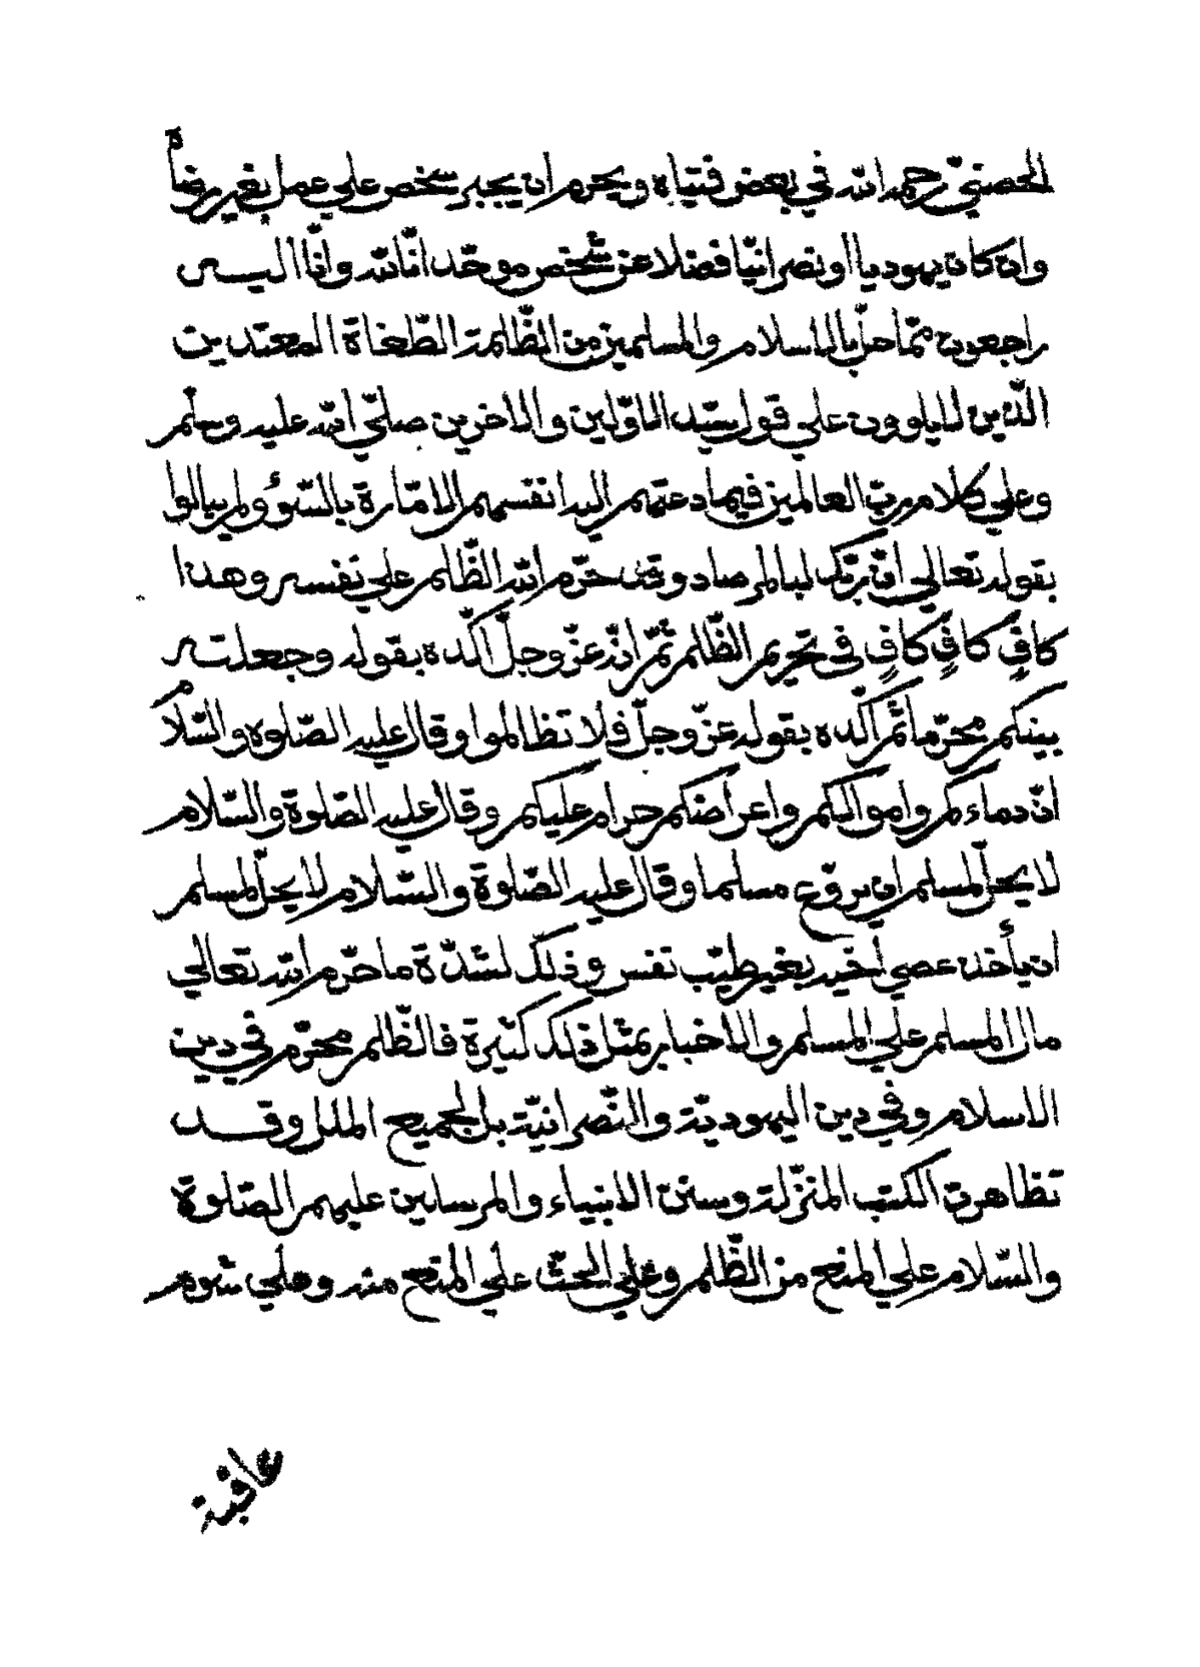 الحصنيّ رحمه الله في بعض فتياه ويحرم ان يجبر شخص علي عمل بغير رضاه
وان كان يهوديا او نصرانيّا فضلا عن شخص موحّد انّا لله وانّا اليه
راجعون ممّا حلّ بالاسلام والمسلمين من الظّالمة الطّغاة المعتدين
الّذين لا يلوون علي قول سيّد الاوّلين والاخرين صلّي الله عليه وسلّم
وعلي كلام ربّ العالمين فيما دعتهم اليه انفسهم الامّارة بالسّوؤ ولم يبالوا
بقوله تعالي انّ ربّك لبالمرصاد وقد حرّم الله الظّلم علي نفسه وهذا
كافٍ كافٍ كافٍ في تحريم الظّلم ثمّ انّه عزّ وجلّ اكّده بقوله وجعلته
بينكم محرّما ثمّ اكّده بقوله عزّ وجلّ فلا تظالموا وقال عليه الصّلوة والسّلام
انّ دماءكم واموالكم واعراضكم حرام عليكم وقال عليه الصّلوة والسّلام
لا يحلّ لمسلم ان يروّع مسلما وقال عليه الصّلوة والسّلام لا يحلّ لمسلم
ان يأخذ عصي اخيه بغير طيّب نفس وذلك لشدّة ما حرّم الله تعالي
مال المسلم علي المسلم والاخبار بمثل ذلك كثيرة فالظّلم محرّم في دين
الاسلام وفي دين اليهوديّة والنّصرانيّة بل الجميع الملل وقد
تظاهرت الكتب المنزّلة وسنن الانبياء والمرسلين عليهم الصّلوة
والسّلام علي المنع من الظّلم وعلي الحثّ علي المنع منه وعلي شوم
عاقبة